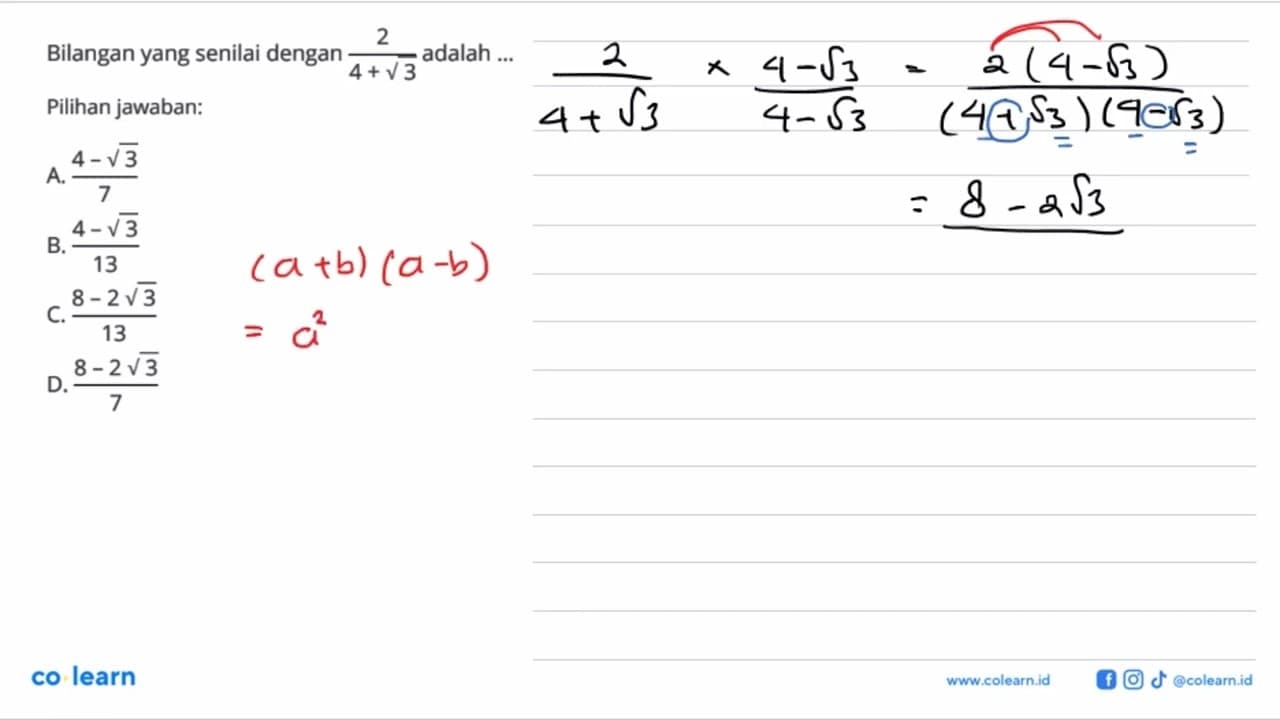 Bilangan yang senilai dengan 2/(4 + √3) adalah ...
Pilihan jawaban:
A. (4 – √3)/7
B. (4 – √3)/13
C. (8 – 2√3)/13
D. (8 – 2√3)/7
(a+b)(a-b)
= a²
2/(4+√3) × (4-√3)/(4-√3) = 2(4-√3)/((4+√3)(4-√3))
= 8-2√3
co·learn
www.colearn.id
@colearn.id